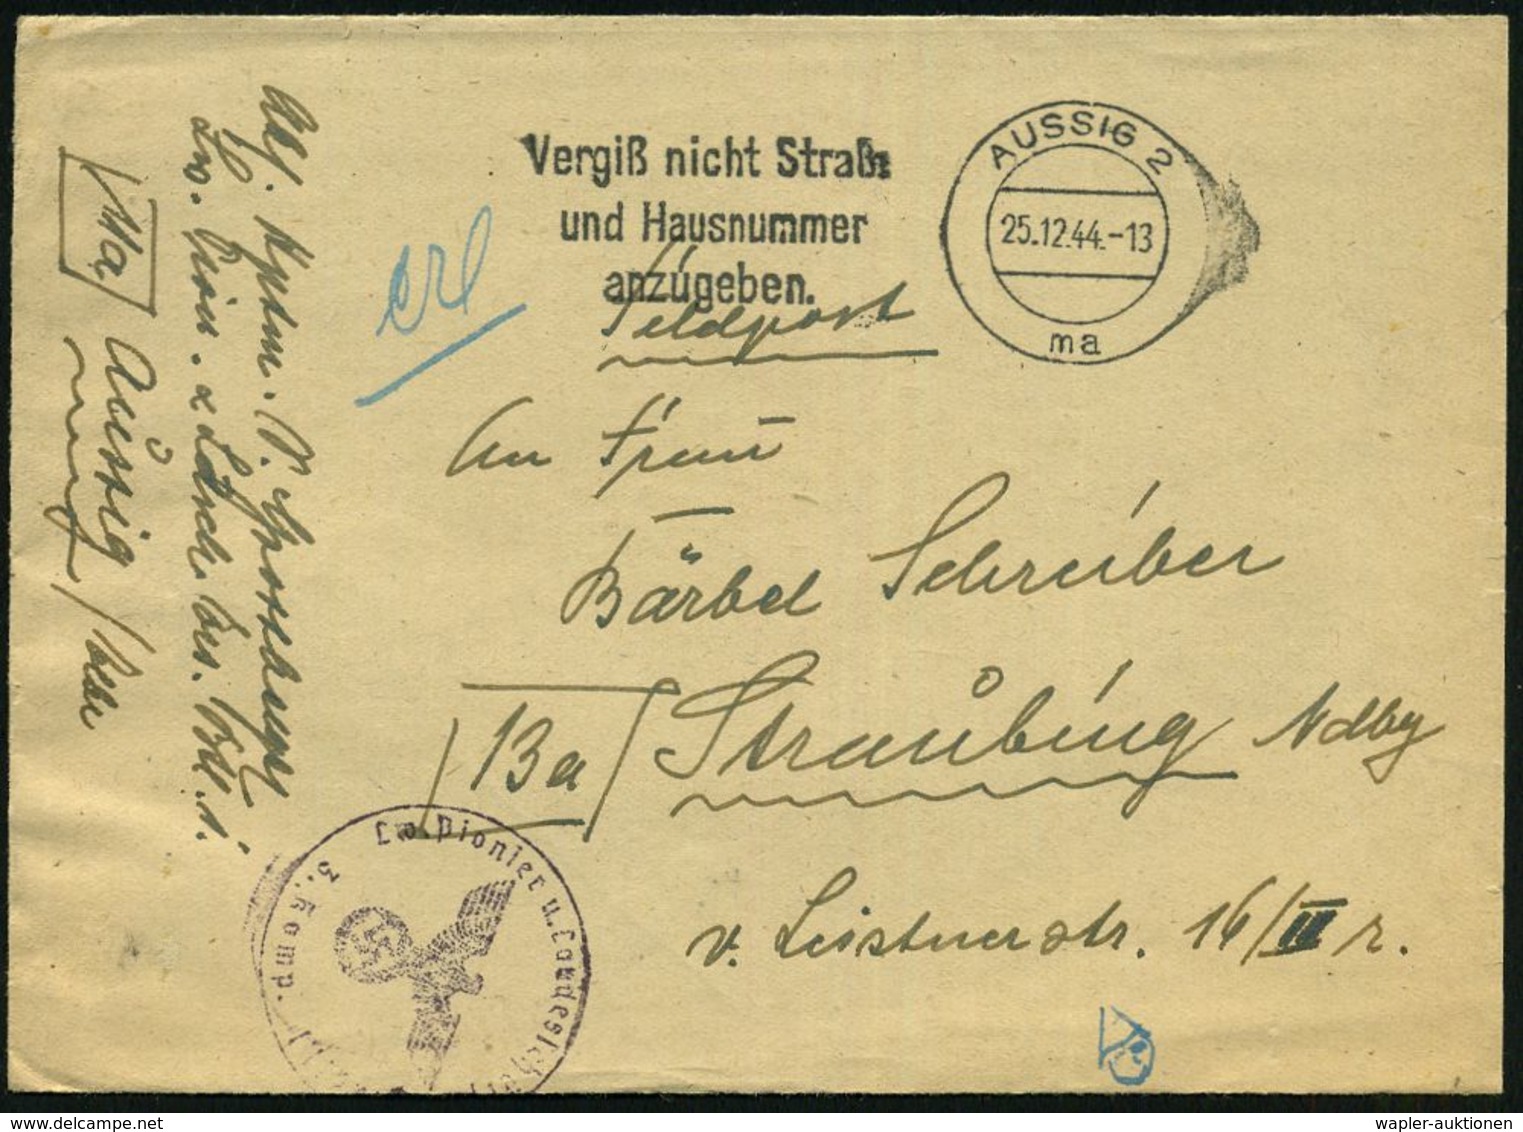 Vergiß nicht Straße
und Hausnummer
anzugeben.
AUSSIG 2
25.12.44.-13
ma
erl
Feldpost
An Frau
Bärbel Schreiber
13a Straubing Ndby
v. Leistnerstr. 16/II r.
Abs. Hptm. V.
Lw. Pion. u. Btl. 1.
11a Aussig / Elbe
Lw. Pionier u. Landesschütz
3. Komp.
wapler-auktionen